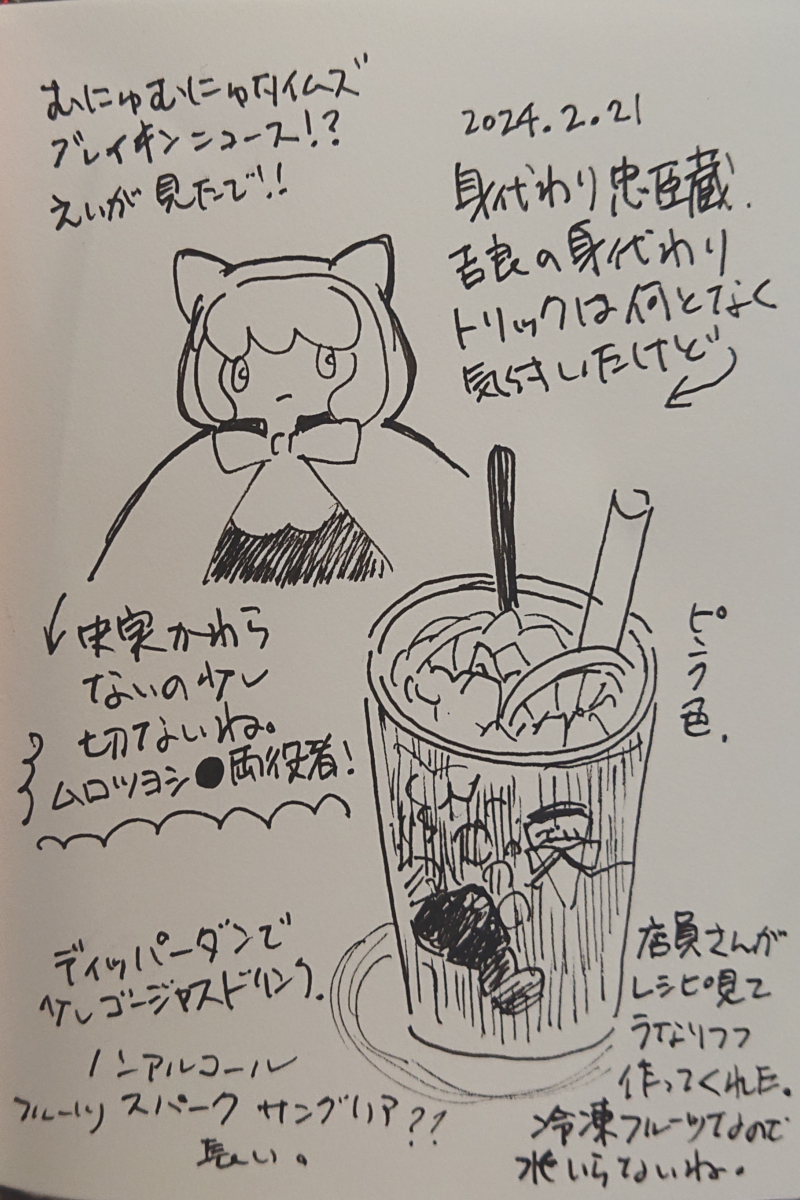 むにゅむにゅタイムズ
ブレイキンニュース!?
えいが見たで!!
2024.2.21
身代わり忠臣蔵.
吉良の身代わり
トリックは何となく
気付いたけど
史実かわら
ないの
切ないね。
ムロツヨシ●両役者!
ピンク色.
ディッパーダンで
ゴージャスドリンク.
ノンアルコール
フルーツ スパーク サングリア??
長い。
店員さんが
レシピ見て
うなりつつ
作ってくれた.
冷凍フルーツなので
氷いらないね.